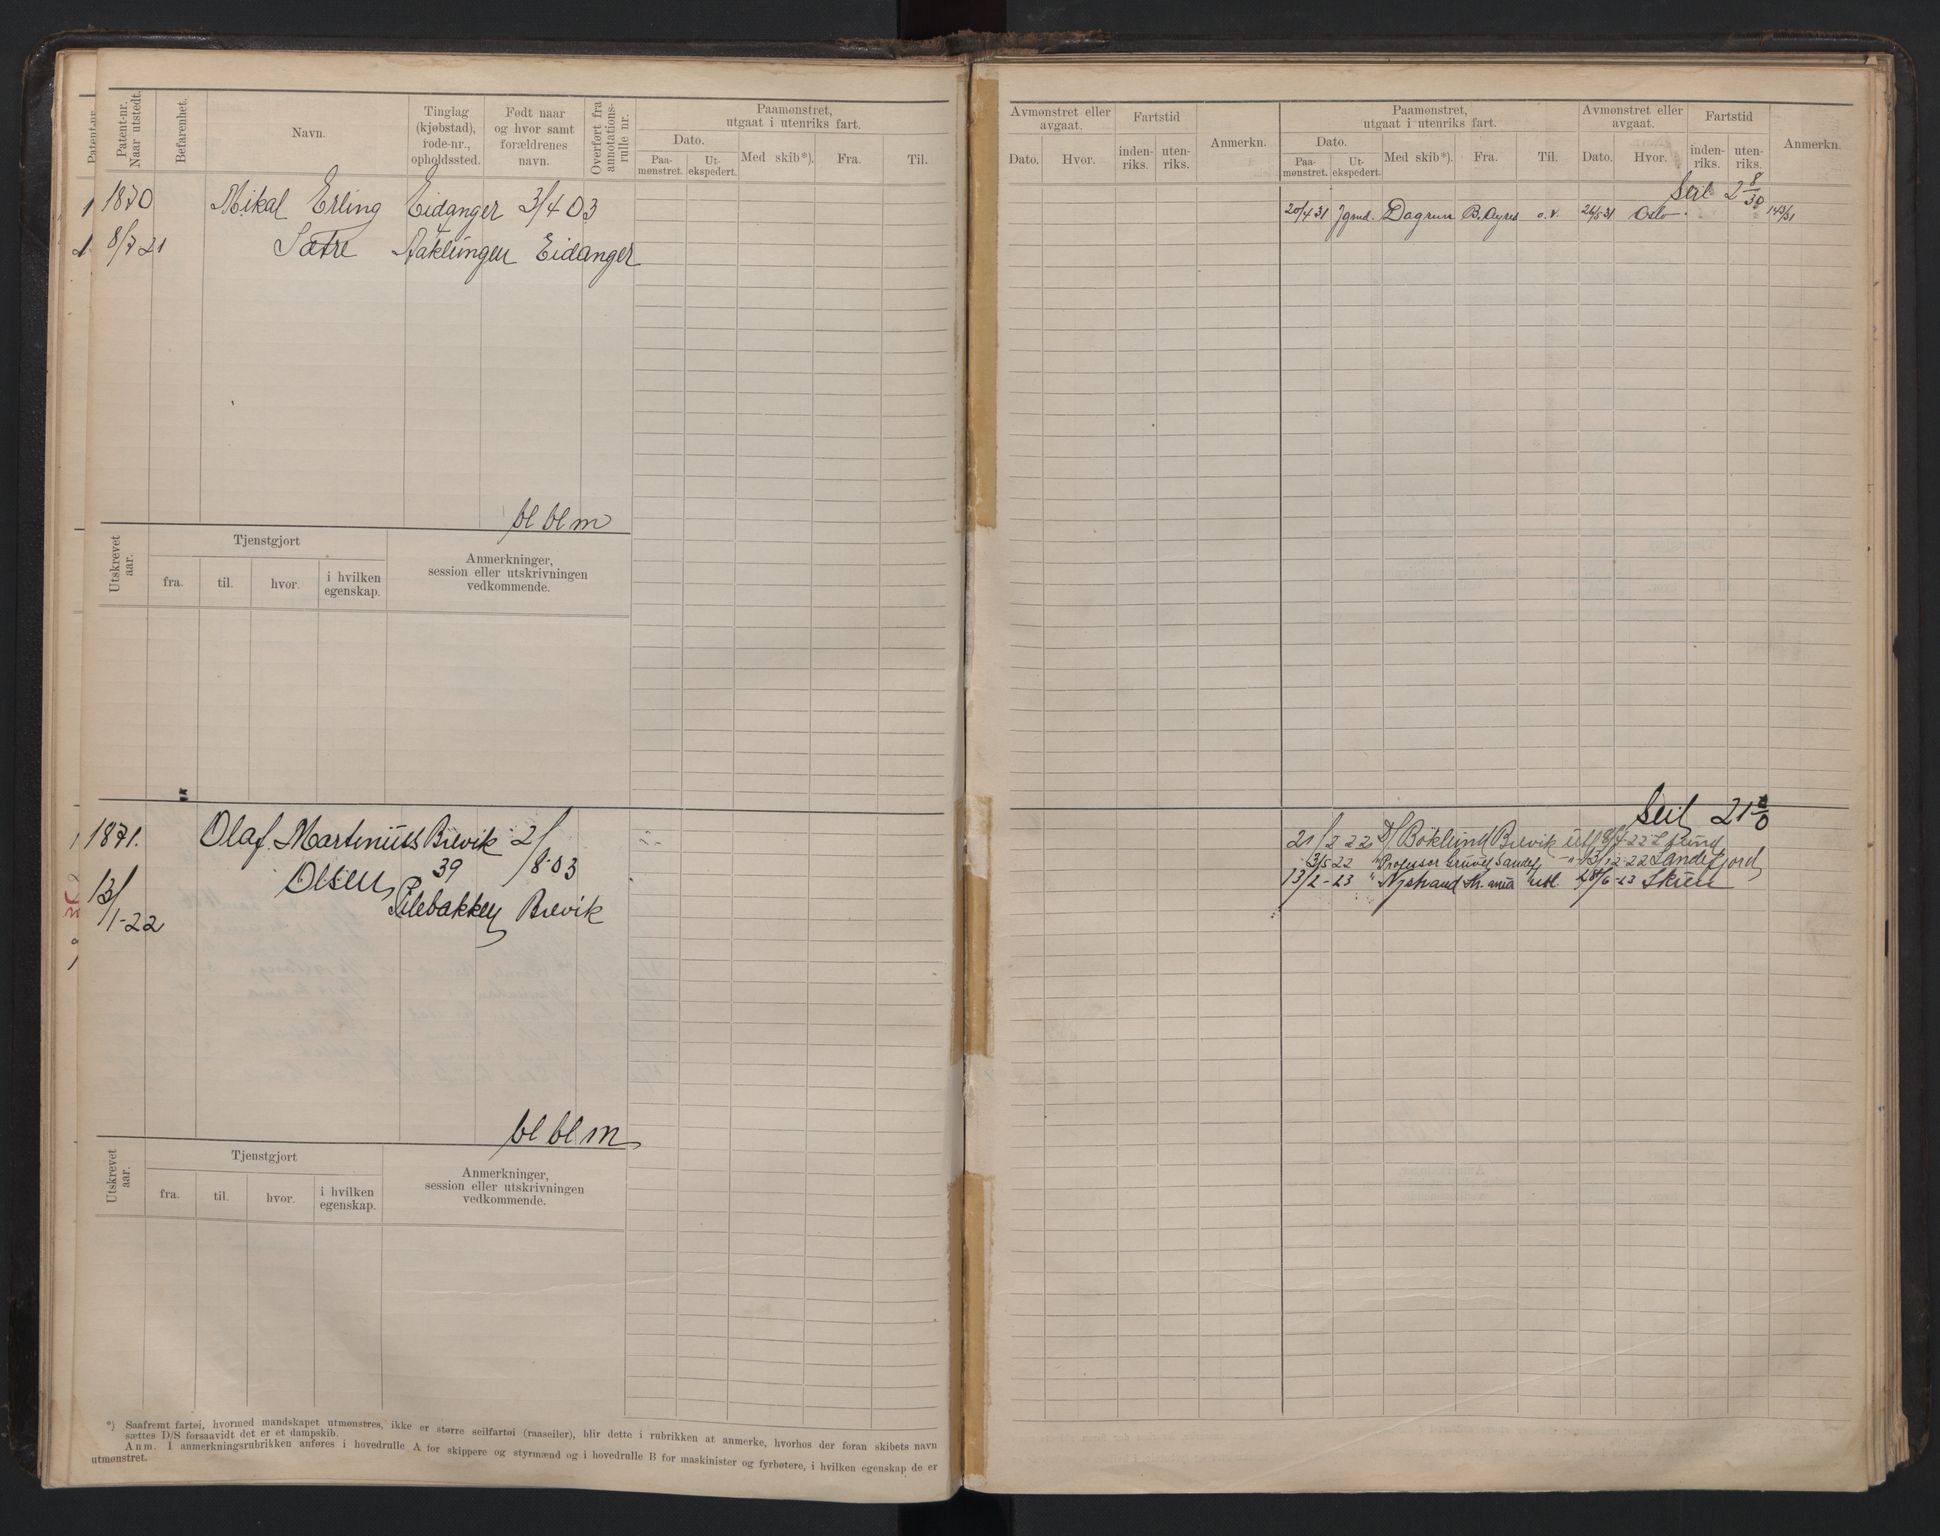 Patent-nr.
Patent-nr.
Naar utstedt.
Befarenhet.
Navn.
Tinglag
(kjøbstad),
rode-nr.,
opholdssted.
Født naar
og hvor samt
forældrenes
navn.
Overført fra
annotations-
rulle nr.
Paamønstret,
utgaat i utenriks fart.
Dato.
Paa-
mønstret.
Ut-
ekspedert.
Med skib*).
Fra.
Til.
1870 Mikal Erling Eidanger 3/4 03
8/7 21 Sætre Aaklungen Eidanger
bl bl m
Utskrevet
aar.
Tjenstgjort
fra.
til.
hvor.
i hvilken
egenskap.
Anmerkninger,
session eller utskrivningen
vedkommende.
1871. Olaf Martinius Brevik 2/8-03
Olsen 39
13/1-22 Pilebakken Brevik
bl bl m
Utskrevet
aar.
Tjenstgjort
fra.
til.
hvor.
i hvilken
egenskap.
Anmerkninger,
session eller utskrivningen
vedkommende.
*) Saafremt fartøi, hvormed mandskapet utmønstres, ikke er større seilfartøi (raaseiler), blir dette i rubrikken at anmerke, hvorhos der foran skibets navn
sættes D/S forsaavidt det er et dampskib.
Anm. I anmerkningsrubrikken anføres i hovedrulle A for skippere og styrmænd og i hovedrulle B for maskinister og fyrbøtere, i hvilken egenskap de er
utmønstret.
Avmønstret eller
avgaat.
Dato.
Hvor.
Fartstid
inden-
riks.
uten-
riks.
Anmerkn.
Paamønstret,
utgaat i utenriks fart.
Dato.
Paa-
mønstret.
Ut-
ekspedert.
Med skib*).
Fra.
Til.
Avmønstret eller
avgaat.
Dato.
Hvor.
Fartstid
inden-
riks.
uten-
riks.
Anmerkn.
Seil 2 8/30
20/4 31 Jgmd. Dagrun B. Ayres o.v. 26/5 31 Oslo 143/31
Seil 21
21/2 22 D/ Böklund Brevik utl 8/4-22
3/5-22 " Professor Gruvel Sandefj -"- 13/12-22 Sandefjord
13/2-23 " Nystrand Kr.ania utl. /6-23 Skien